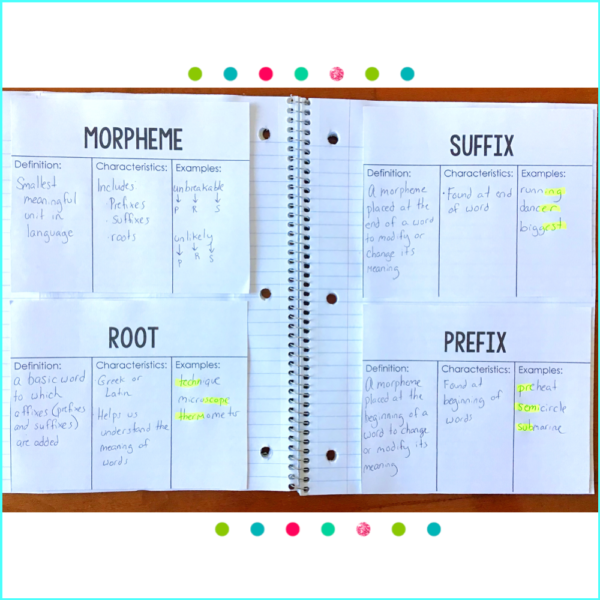 MORPHEME
Definition:
Smallest
meaningful
unit in
language
Characteristics:
Includes
- Prefixes
- Suffixes
- roots
Examples:
unbreakable
P R S
unlikely
P R S
ROOT
Definition:
a basic word
to which
affixes (prefixes
and suffixes)
are added
Characteristics:
Greek or
Latin
Helps us
understand the
meaning of
words
Examples:
technique
microscope
thermometer
SUFFIX
Definition:
A morpheme
placed at the
end of a word
to modify or
change its
meaning
Characteristics:
• Found at end
of word
Examples:
running
dancer
biggest
PREFIX
Definition:
A morpheme
placed at the
beginning of a
word to change
or modify its
meaning
Characteristics:
Found at
beginning of
words
Examples:
preheat
semicircle
submarine